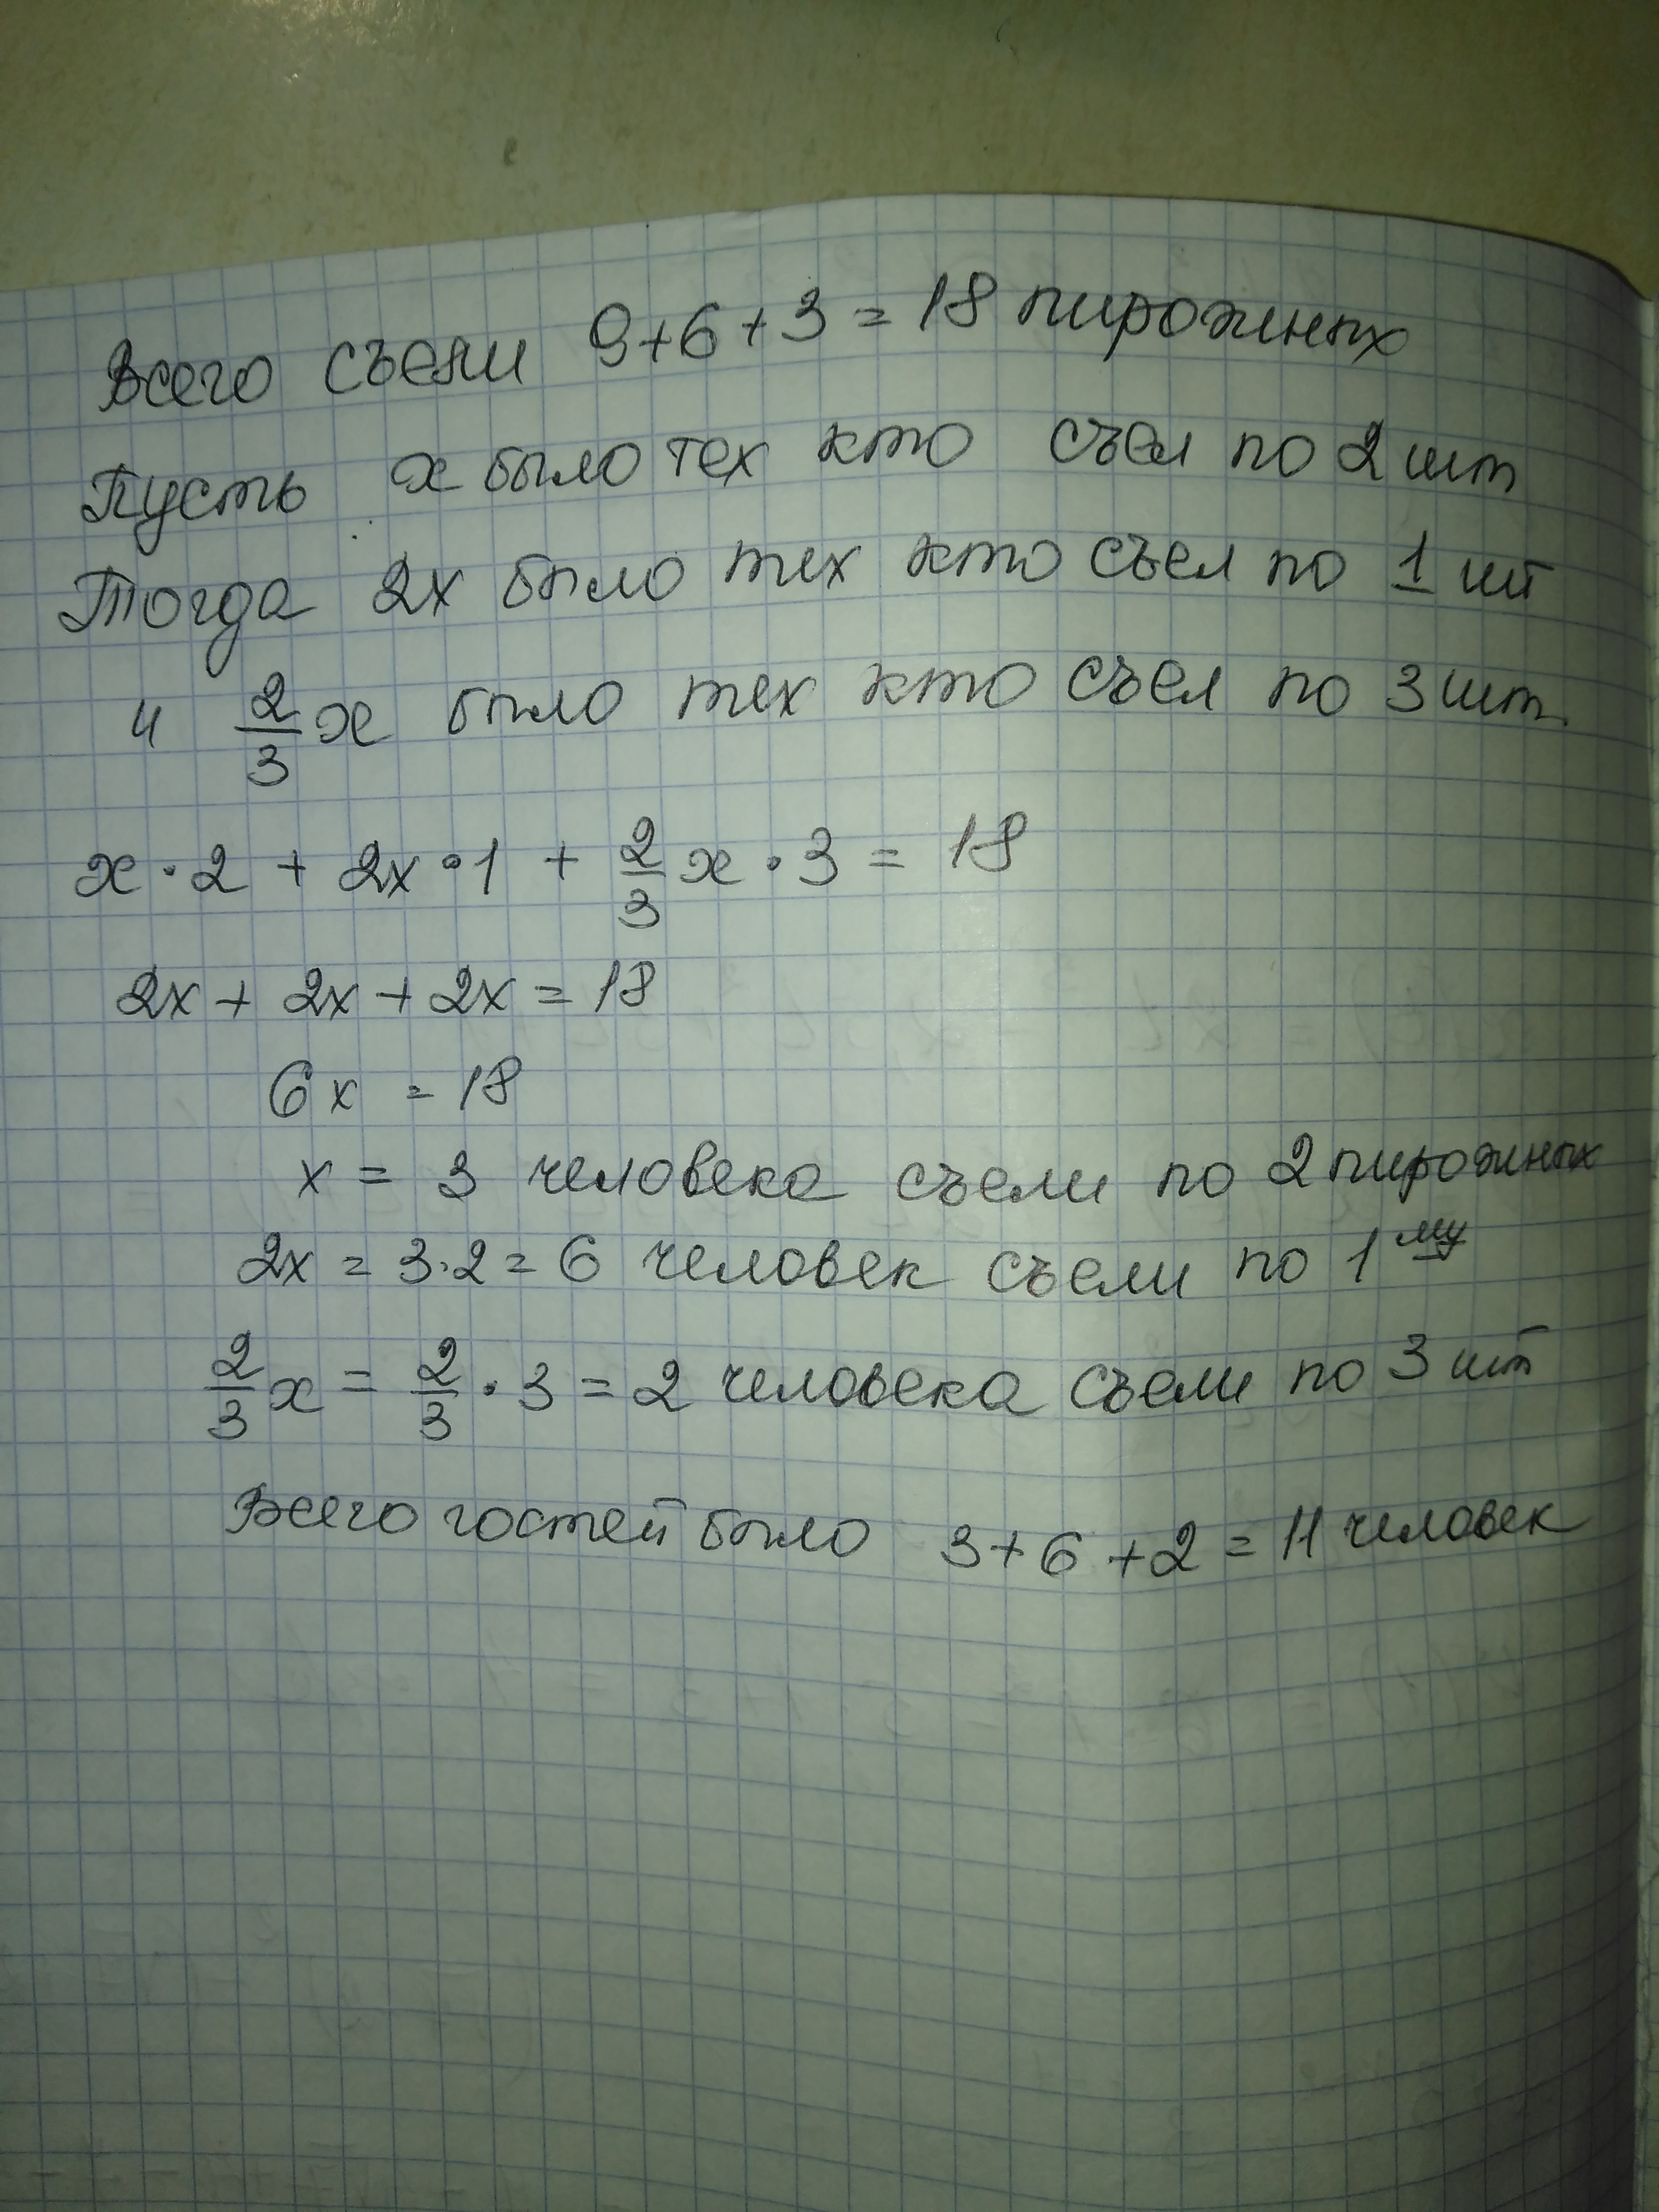 Всего съели 9+6+3=18 пирожных
Пусть x было тех кто съел по 2 шт
Тогда 2x было тех кто съел по 1 шт
и 2/3 x было тех кто съел по 3 шт.
x · 2 + 2x · 1 + 2/3 x · 3 = 18
2x + 2x + 2x = 18
6x = 18
x = 3 человека съели по 2 пирожных
2x = 3·2 = 6 человек съели по 1му
2/3 x = 2/3 · 3 = 2 человека съели по 3 шт
Всего гостей было 3+6+2 = 11 человек